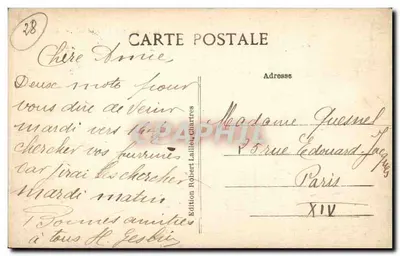 28
CARTE POSTALE
Adresse
Chère Amie,
Deux mots pour
vous dire de venir
mardi vers
chercher vos fourrures
car j'irai les chercher
mardi matin
Bonnes amitiés
à tous H.
Edition Robert Lallieu, Chartres
Madame Quesnel
25 rue Edouard Jacques
Paris
XIV